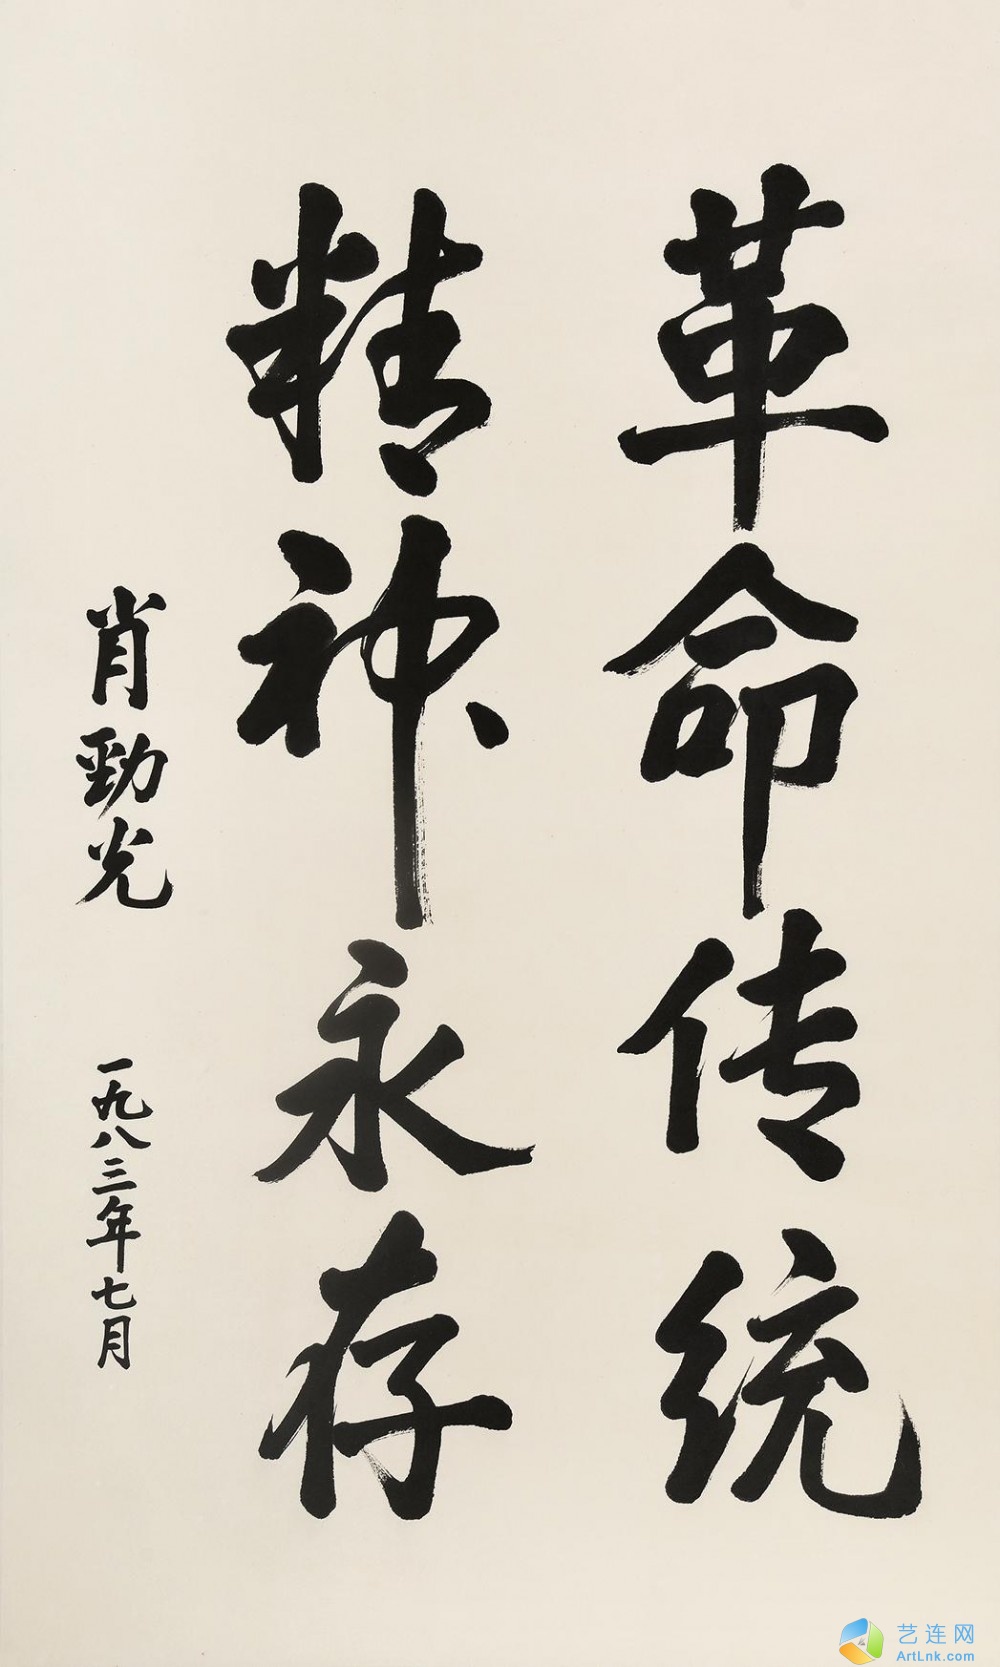 革命传统
精神永存
肖劲光 一九八三年七月
艺连网
ArtLnk.com